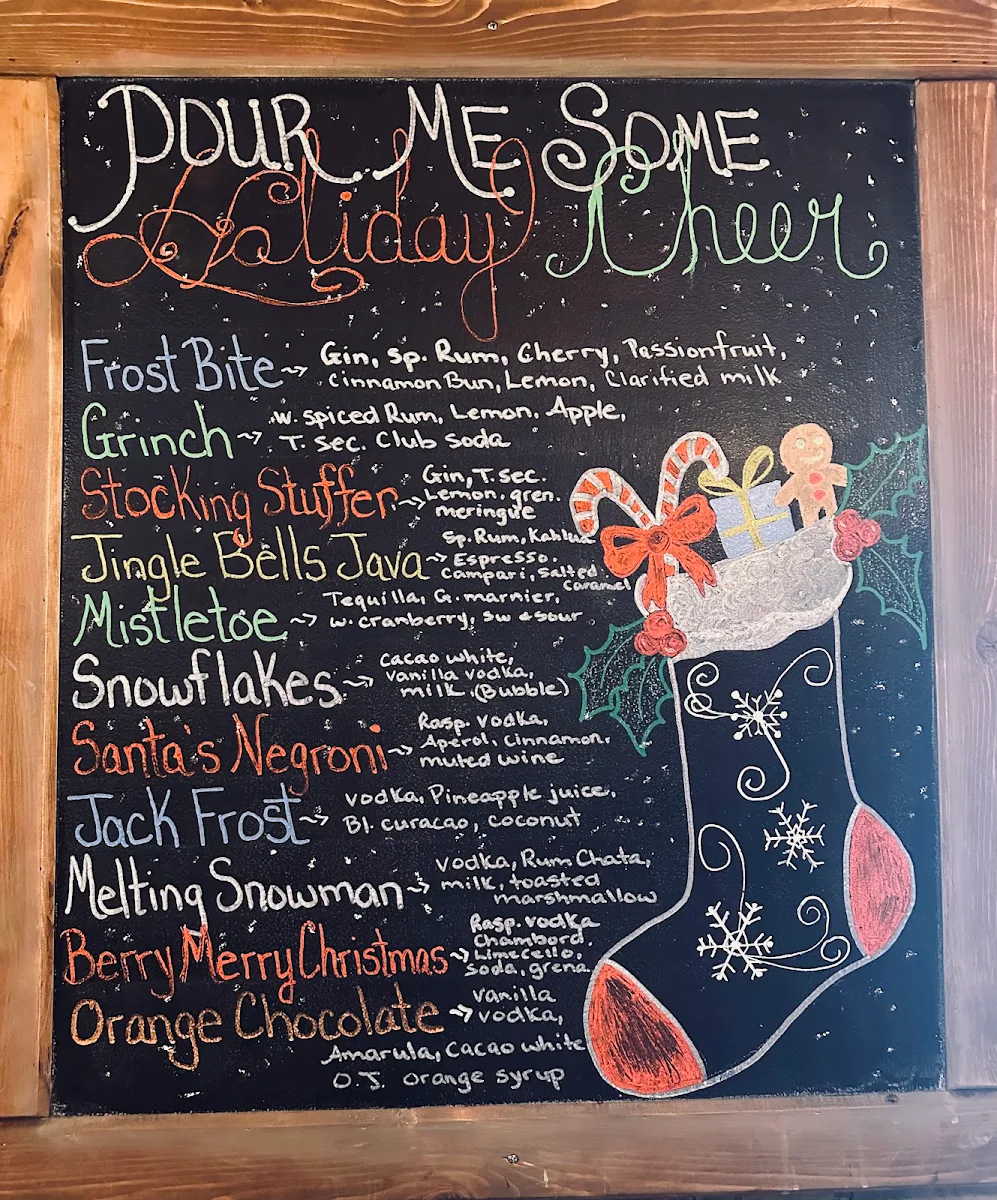 POUR ME SOME
Holiday Cheer
Frost Bite ~> Gin, Sp. Rum, Cherry, Passionfruit,
Cinnamon Bun, Lemon, Clarified milk
Grinch ~> w. spiced Rum, Lemon. Apple,
T. Sec. Club soda
Stocking Stuffer ~> Gin, T. sec.
Lemon. gren.
meringue
Jingle Bells Java ~> Sp. Rum, Kahlua
Espresso.
Campari, salted
caramel
Mistletoe ~> Tequilla, G. marnier,
w. cranberry, sw & sour
Snowflakes ~> Cacao white,
vanilla vodka,
milk (Bubble)
Santa's Negroni ~> Rasp. vodka,
Aperol, Cinnamon.
muted wine
Jack Frost ~> vodka, Pineapple juice,
Bl. curacao, coconut
Melting Snowman ~> vodka, Rum Chata,
milk, toasted
marshmallow
Berry Merry Christmas ~> Rasp. vodka
Chambord.
Limecello,
soda, grena.
Orange Chocolate ~> vanilla
vodka,
Amarula, Cacao white
O.J. orange syrup